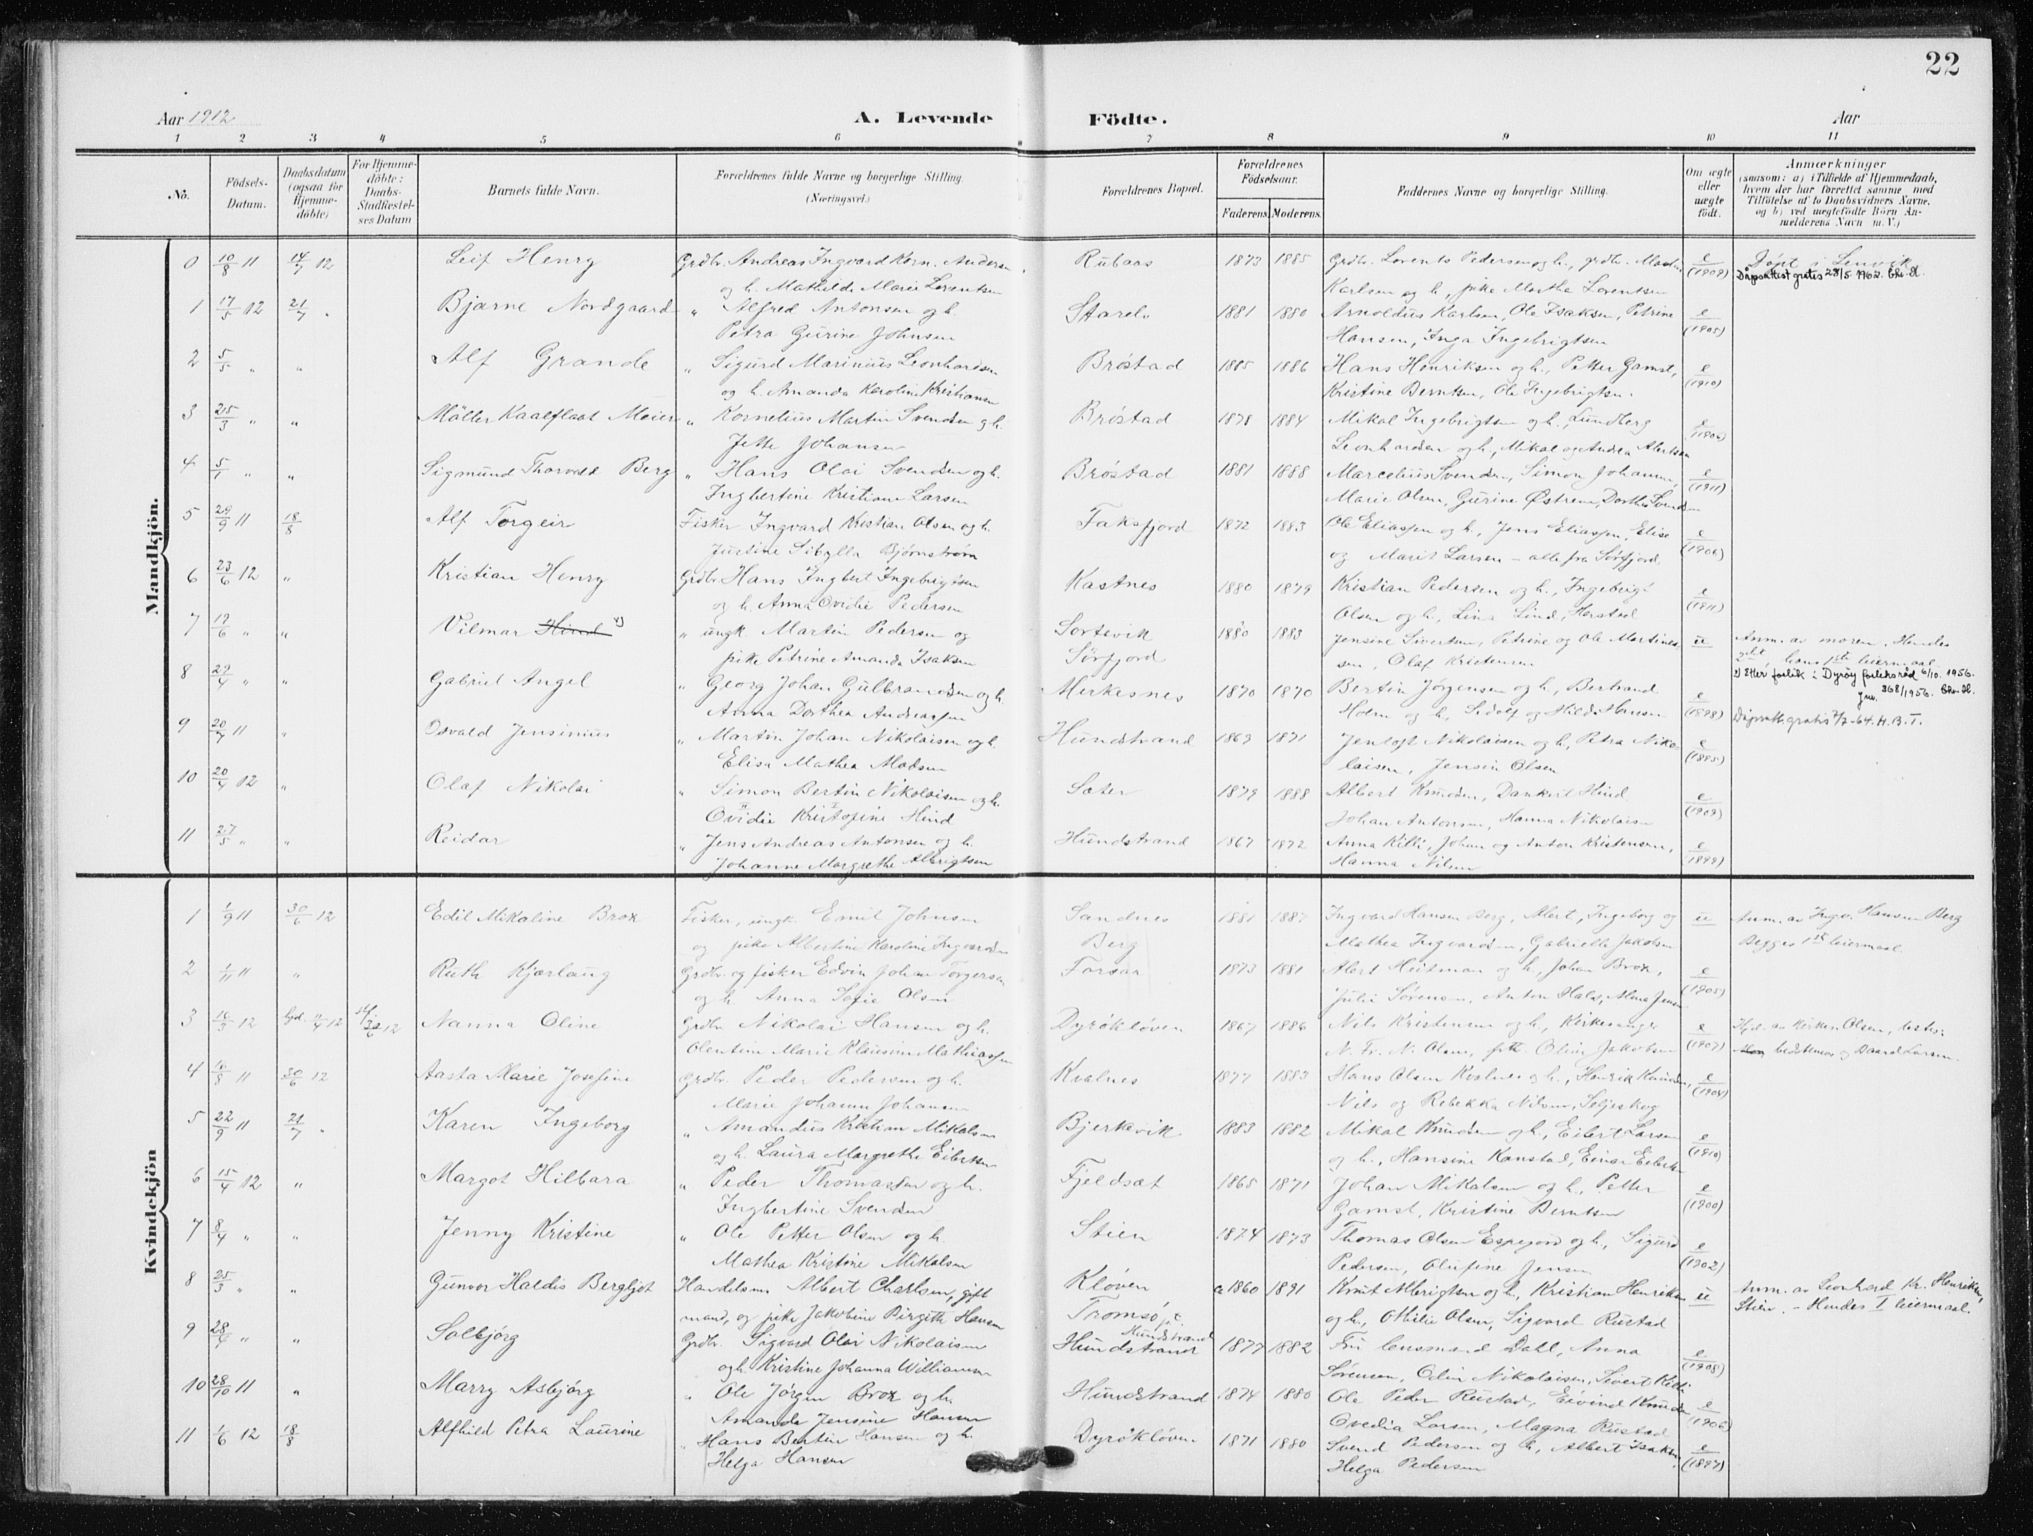 22
Aar 1912
A. Levende Födte.
Aar
1 2 3 4 5 6 7 8 9 10 11
No.
Födsels-Datum.
Daabsdatum (ogsaa for Hjemme-döbte)
For Hjemme-döbte: Daabs-Stadfæstel-ses Datum
Barnets fulde Navn.
Forældrenes fulde Navne og borgerlige Stilling. (Næringsvei.)
Forældrenes Bopæl.
Forældrenes Födselsaar.
Faderens. Moderens.
Faddernes Navne og borgerlige Stilling.
Om ægte eller uægte födt.
Anmærkninger
(saasom: a) i Tilfælde af Hjemmedaab,
hvem der har forrettet samme med
Tilföielse af to Daabsvidners Navne.
og b) ved uægtefödte Börn An-
melderens Navn m. V.)
Mandkjön.
0 10/8 11 14/7 12 Leif Henry Grdbr. Andreas Ingvard Korn. Andersen Rubaas 1873 1885 Grdbr. Lorents Pedersen og h., grdbr. Martin e Döpt i Lenvik
og h. Mathilde Marie Lorentsen Karlsen og h., pike Martha Lorentsen (1909) Dåpsattest gratis 28/5 1962.
1 17/5 12 21/7 " Bjarne Nordgaard " Alfred Antonsen og h. 1881 1880 Arnoldus Karlsen, Ole Isaksen, Petrine e
Petra Gurine Johnsen Hansen, Inga Ingebrigtsen (1905)
2 5/5 " " Alf Grande " Sigurd Marinius Leonhardsen Brøstad 1885 1886 Hans Henriksen og h., Petter Gamst, e
og h. Amanda Karoline Kristiansen Kristine Berntsen, Ole Ingebrigtsen. (1910)
3 25/3 " " Möller Kaalflaat Meier " Kornelius Martin Svendsen og h. Brøstad 1878 1884 Mikal Ingebrigtsen og h., Lundberg e
Jette Johansen Leonhardsen og h., Mikal og Andrea Albertsen
4 5/1 " " Sigmund Thorvald Berg " Hans Olai Svendsen og h. Brøstad 1881 1888 Marcelius Svendsen, Simon Johansen, e
Ingbertine Kristiane Larsen Marie Olsen, Gurine Østrem, Dorthe Svendsen (1911)
5 29/9 11 18/8 Alf Torgeir Fisker Ingvard Kristian Olsen og h. Faksfjord 1872 1883 Ole Eliassen og h., Jens Eliassen, Elise e
Justine Sibylla Bjørnstrøm og Marit Larsen – alle fra Sørfjord (1906)
6 23/6 12 " Kristian Henry Grdbr Hans Ingbert Ingebrigtsen Kastnes 1880 1879 Kristian Pedersen og h., Ingebrigt e
og h. Anna Ovidie Pedersen Olsen og h., Lina Lind, (1911)
7 19/6 " " Vilmar Hind " ungk. Martin Pedersen og Sortevik 1880 1883 Jensine Sivertsen, Petrine og Ole Martines- u Anm. av moren. Hendes
pike Petrine Amanda Isaksen Sørfjord sen, Olaf Kristensen hans 1ste leiermaal.
8 29/4 " " Gabriel Angel " Georg Johan Gulbrandsen og h. Merkesnes 1870 1870 Bertin Jørgensen og h., Bertrand e Etter forlik i Dyrøy forliksråd 6/10. 1956.
Anna Dorthea Andreassen Holm og h., Sedolf og Hilda Hansen (1898) Jnr. 368/1956.
9 20/7 11 " Osvald Jensinius " Martin Johan Nikolaisen og h. Hundstrand 1869 1871 Jentoft Nikolaisen og h., Petra Niko- e Dåpsatt. gratis 2/2-64. H.B.T.
Elisa Mathea Madsen laisen, Jensin Olsen (1895)
10 20/4 12 " Olaf Nikolai " Simon Bertin Nikolaisen og h. Sæter 1879 1888 Albert Knudsen, Dankert Hind e
Ovidie Kristofine Hind Johan Antonsen, Hanna Nikolaisen (1909)
11 27/5 " " Reidar " Jens Andreas Antonsen og h. Hundstrand 1867 1872 Anna Killi, Johan og Anton Kristensen, e
Johanne Margrethe Albrigtsen Hanna Nilsen (1899)
Kvindekjön
1 1/9 11 30/6 12 Edil Mikaline Brox Fisker, ungk. Emil Johnsen Sandnes 1881 1887 Ingvard Hansen Berg, Albert, Ingeborg og u Anm. av Ingv. Hansen Berg
og pike Albertine Karoline Ingvardsen Berg Mathea Ingvardsen, Gabriella Jakobsen Begges 1ste leiermaal.
2 1/11 11 " Ruth Kjærlaug Grdbr. og fisker Edvin Johan Torgersen Forsar 1873 1881 Albert Heitman og h., Johan Brox, e
og h. Anna Sofie Olsen Julie Sørensen, Anton Hals, Alma Jensen (1905)
3 10/3 12 Hjd. 11/4 12 30/6 12 Nanna Oline Grdbr Nikolai Hansen og h. Dyrøkløven 1867 1886 Nils Kristensen og h., Kirkesanger e Hjd. av kirken Olsen, testes:
Olentine Marie Klausine Mathiassen N. Fr. N. Olsen, frk. Olin Jakobsen (1907) bedstemor og Daard Larsen.
4 10/8 11 30/6 12 Aasta Marie Josefine Grdbr. Peder Pedersen og h. Kvalnes 1877 1883 Hans Olsen Kvalnes og h., Henrik Knudsen, e
Marie Johanna Johansen Nils og Rebekka Nilsen, Seljeskog (1904)
5 22/9 11 21/7 " Karen Ingeborg " Amandus Kristian Mikalsen Bjerkevik 1883 1882 Mikal Knudsen og h., Eibert Larsen e
og h. Laura Margrethe Eibertsen og h., Hansine Kanstad, Einar Eibertsen (1910)
6 15/4 12 " Margot Hilbara " Peder Thomassen og h. Fjeldsæt 1865 1871 Johan Mikalsen og h., Petter e
Ingbertine Svendsen Gamst, Kristine Berntsen (1900)
7 8/4 " " Jenny Kristine " Ole Petter Olsen og h. Stien 1874 1873 Thomas Olsen Espejord og h., Sigurd e
Mathea Kristine Mikalsen Pedersen, Olufine Jensen (1902)
8 25/3 " " Gunvor Haldis Bergljot Handelsm. Albert Charlsen, gift Kløven ca 1860 1891 Knut Albrigtsen og h., Kristian Henriksen u Anm. av Leonhard Kr. Henriksen,
mand, og pike Jakobine Birgith Hansen Tromsø, p.t. Hundstrand og h., Othilie Olsen, Sigvard Rustad Stien. – Hendes I leiermaal.
9 28/4 " " Solbjörg Grdbr. Sigvard Olai Nikolaisen Hundstrand 1877 1882 Fru lensmand Dahl, Anna e
og h. Kristine Johanna Williamsen Sørensen, Odin Nikolaisen, Sivert Killi (1908)
10 28/10 11 " Marry Asbjörg " Ole Jørgen Brox og h. Hundstrand 1874 1880 Ole Peder Rustad, Eivind Knudsen e
Amanda Jensine Hansen Ovedia Larsen, Magna Rustad (1906)
11 1/6 12 18/8 Alfhild Petra Laurine " Hans Bertin Hansen og h. Dyrøkløven 1871 1880 Svend Pedersen og h., Albert Isaksen, e
Helga Hansen Helga Pedersen (1897)